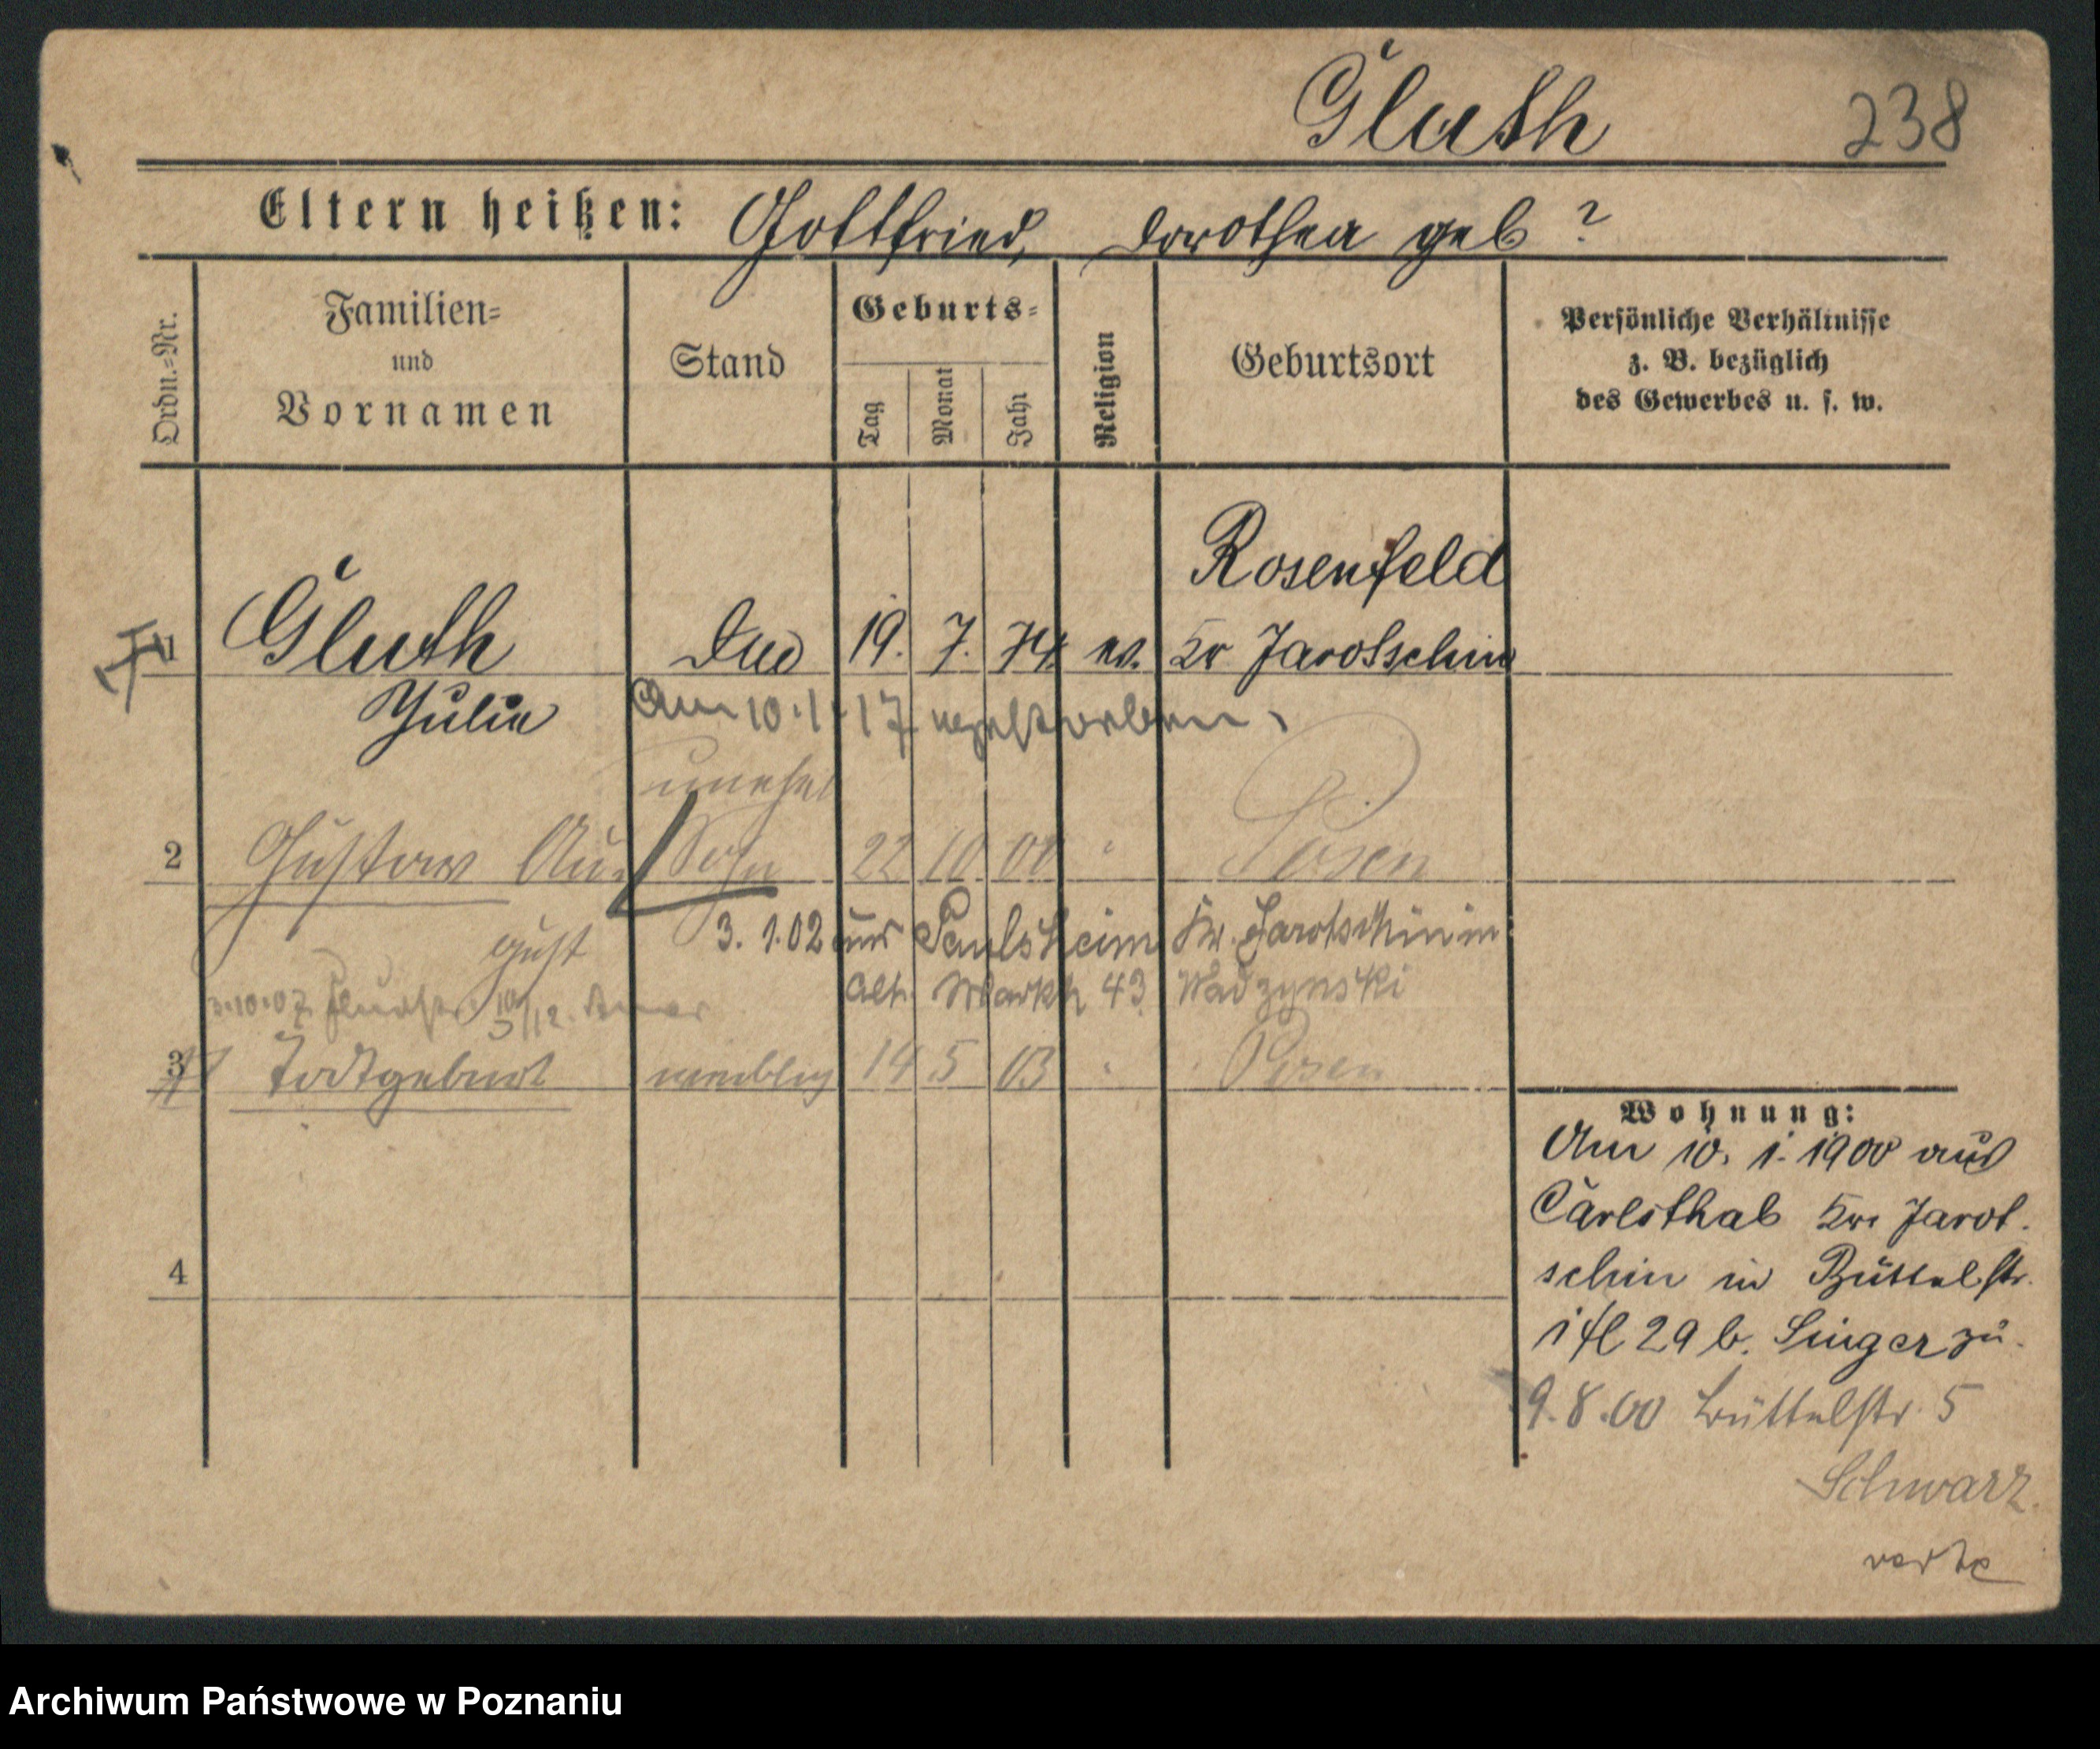 Gluth 238
Eltern heißen: Gottfried, Dorothea geb ?
Ordn.=Nr.
Familien=
und
Vornamen
Stand
Geburts=
Tag
Monat
Jahr
Religion
Geburtsort
Persönliche Verhältnisse
z. B. bezüglich
des Gewerbes u. s. w.
Rosenfeld
1 Gluth 19. 7. 74 ev. Kr Jarotschin
Julie Am 10.1.17 gestorben.
unehel
2 Gustav Au- Sohn 22 10 00 " Posen
gust 3. 1.02 aus Paulsheim Kr. Jarotschin in
Alt. Markt 43 Wadzynski
3.10.07
3 Todtgeburt weiblich 14 5 03 " Posen
Wohnung:
Am 10. 1. 1900 aus
Carlsthal Kr. Jarot-
schin in Büttelstr.
29 b. Singer zu.
4
9.8.00 Büttelstr. 5
Schwarz.
verte
Archiwum Państwowe w Poznaniu